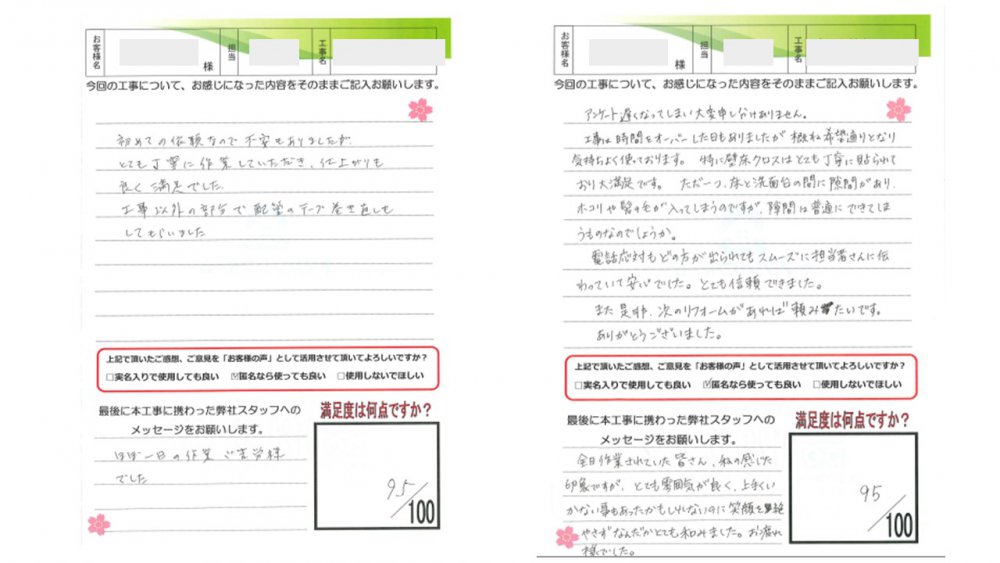 お客様名
様
担当
工事名
今回の工事について、お感じになった内容をそのままご記入お願いします。
初めての依頼なので不安もありましたが
とても丁寧に作業していただき、仕上がりも
良く満足でした。
工事以外の部分で配管のテープ巻き直しも
してもらいました
上記で頂いたご感想、ご意見を「お客様の声」として活用させて頂いてよろしいですか?
□実名入りで使用しても良い ☑匿名なら使っても良い □使用しないでほしい
最後に本工事に携わった弊社スタッフへの
メッセージをお願いします。
ほぼ一日の作業ご苦労様
でした
満足度は何点ですか?
95/100
お客様名
様
担当
工事名
今回の工事について、お感じになった内容をそのままご記入お願いします。
アンケート遅くなってしまい大変申し分けありません。
工事は時間をオーバーした日もありましたが概ね希望通りとなり
気持ちよく使っております。特に壁床クロスはとても丁寧に貼られて
おり大満足です。ただ一つ、床と洗面台の間に隙間があり、
ホコリや髪の毛が入ってしまうのですが、隙間は普通にできてしま
うものなのでしょうか。
電話応対もどの方が出られてもスムーズに担当者さんに伝
わっていて安心でした。とても信頼できました。
また是非、次のリフォームがあれば頼みたいです。
ありがとうございました。
上記で頂いたご感想、ご意見を「お客様の声」として活用させて頂いてよろしいですか?
□実名入りで使用しても良い ☑匿名なら使っても良い □使用しないでほしい
最後に本工事に携わった弊社スタッフへの
メッセージをお願いします。
全日作業されていた皆さん、私の感じた
印象ですが、とても雰囲気が良く、上手くい
かない事もあったかもしれないのに笑顔を絶
やさずなんだかとても和みました。お疲れ
様でした。
満足度は何点ですか?
95/100